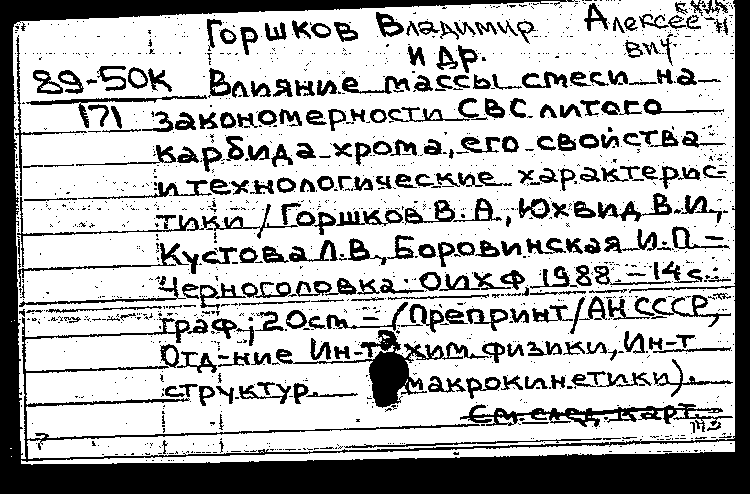 Горшков Владимир Алексее-
вич
и др.
89-50К Влияние массы смеси на
171 закономерности СВС литого
карбида хрома, его свойства
и технологические характерис-
тики / Горшков В.А., Юхвид В.И.,
Кустова Л.В., Боровинская И.П. –
Черноголовка: ОИХФ, 1988. – 14 с.:
граф.; 20 cm. – (Препринт / АН СССР,
Отд-ние Ин-та хим. физики, Ин-т
структур. макрокинетики).
См. след. карт.